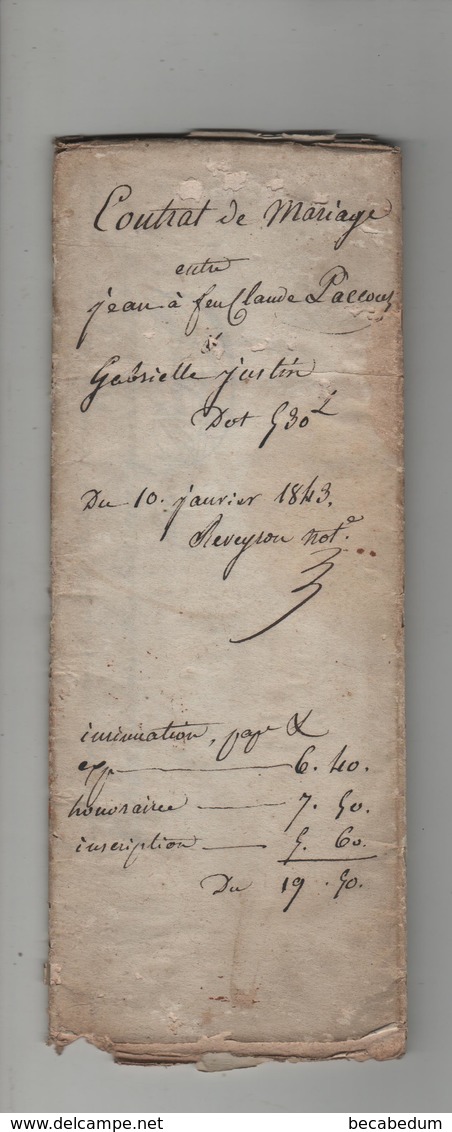 Contrat de Mariage
entre
jean à feu Claude Paccoud
&
Gabrielle justin
Dot 530 L
Du 10. janvier 1843.
Reveyron not.e
insinuation, pap &
exp 6. 40.
honoraires 7. 50.
inscription 5. 60.
Du 19. 50.
becabedum